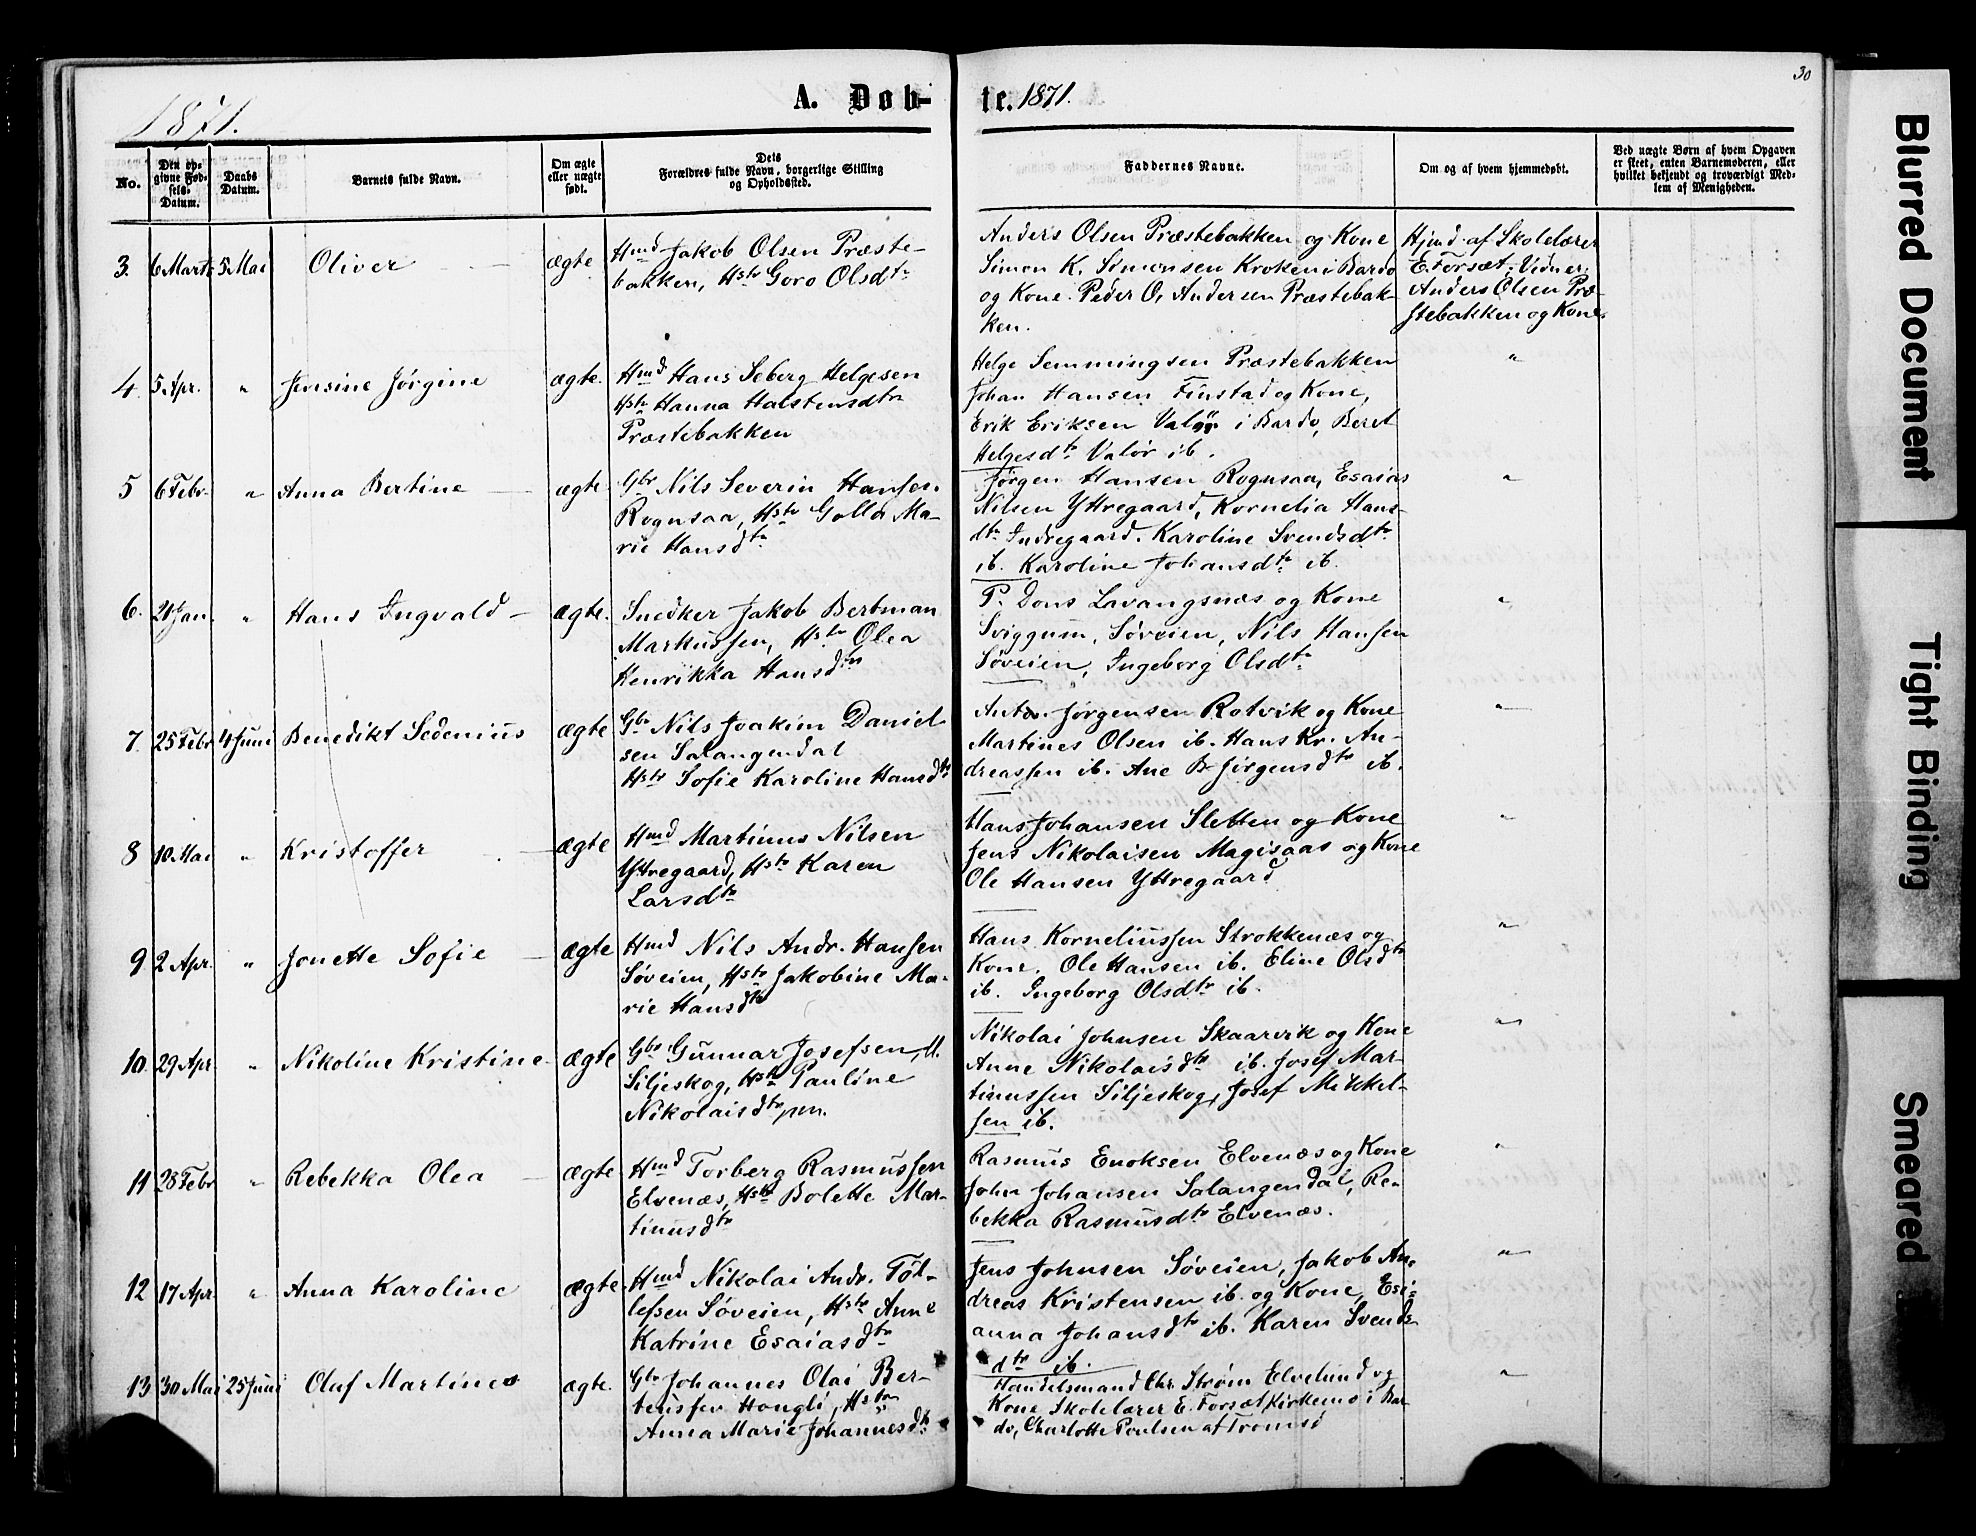 30
1871.
A. Døb-
te. 1871.
No.
Den op-
givne Fød-
sels-
Datum.
Daabs
Datum.
Barnets fulde Navn.
Om ægte
eller uægte
født.
Dets
Forældres fulde Navn, borgerlige Stilling
og Opholdssted.
Faddernes Navne.
Om og af hvem hjemmedøbt.
Ved uægte Børn af hvem Opgaven
er skeet, enten Barnemoderen, eller
hvilket bekjendt og troværdigt Med-
lem af Menigheden.
3. 6 Marts 5 Mai Oliver ægte
Hmd Jakob Olsen Præste-
bakken, Hstr Goro Olsdtr
Anders Olsen Præstebakken og Kone
Simon K. Simonsen Kroken i Bardo
og Kone. Peder O. Andersen Præstebak-
ken.
Hjmd. af Skolelærer
E. Forsæt. Vidner:
Anders Olsen Præ-
stebakken og Kone.
4 5 Apr. " Jensine Jørgine ægte.
Hmd Hans Seberg Helgesen
Hstr Hanna Halstensdtr
Præstebakken
Helge Semmingsen Præstebakken
Johan Hansen Finstad og Kone,
Erik Eriksen Valør i Bardo, Beret
Helgesdtr Valør ib.
"
5 6 Febr. " Anna Bertine ægte
Gbr Nils Severin Hansen
Rognsaa, Hstr Golla Ma-
rie Hansdtr
Jørgen Hansen Rognsaa, Esaias
Nilsen Yttregaard, Kornelia Hans-
dtr Indregaard. Karoline Svendsdtr
ib. Karoline Johansdtr ib.
"
6. Jan. " Hans Ingvald ægte.
Snedker Jakob Bertman
Markussen, Hstr Olea
Henrikka Hansdtr
P. Dons Lavangsnæs og Kone
Sviggum, Søveien, Nils Hansen
Søveien, Ingeborg Olsdtr
"
7. 25 Febr 4 Juni Benedikt Sedenius ægte
Gbr Nils Joakim Daniel-
sen Salangendal
Hstr Sofie Karoline Hansdtr
Andr. Jørgensen Rotvik og Kone
Martines Olsen ib. Hans Kr. An-
dreassen ib. Ane B. Jørgensdtr ib.
"
8 10 Mai " Kristoffer ægte
Hmd Martinus Nilsen
Yttregaard, Hstr Karen
Larsdtr
Hans Johansen Sletten og Kone
Jens Nikolaisen Magisaas og Kone
Ole Hansen Yttregaard
"
9 2 Apr. " Jonette Sofie ægte
Hmd Nils Andr. Hansen
Søveien, Hstr Jakobine Ma-
rie Hansdtr
Hans Korneliussen Strokkenæs og
Kone. Ole Hansen ib. Eline Olsdtr
ib. Ingeborg Olsdtr ib.
"
10. 29 Apr. " Nikoline Kristine ægte
Gbr Gunnar Josefsen,
Siljeskog, Hstr Pauline
Nikolaisdtr
Nikolai Johnsen Skaarvik og Kone
Anne Nikolaisdtr ib. Josef Mar-
tinussen Siljeskog, Josef Mikkel-
sen ib.
"
11 28 Febr " Rebekka Olea ægte
Hmd Torberg Rasmussen
Elvenæs, Hstr Bolette Mar-
tinusdtr
Rasmus Enoksen Elvenæs og Kone
John Johansen Salangendal, Re-
bekka Rasmusdtr Elvenæs.
"
12 17 Apr. " Anna Karoline ægte
Hmd Nikolai Andr. Tøl-
lefsen Søveien, Hstr Anne
Katrine Esaiasdtr
Jens Johnsen Søveien, Jakob An-
dreas Kristensen ib. og Kone, Esi-
anna Johansdtr ib. Karen Svends-
dtr ib.
"
13 30 Mai 25 Juni Oluf Martines ægte.
Gbr Johannes Olai Ber-
teussen Hongli, Hstr
Anna Marie Johannesdtr
Handelsmand Chr. Strøm Elvelund og
Kone, Skolelærer E. Forsæt, Kirkemo i Bar-
do, Charlotte Poulsen af Tromsø
"
Blurred Document
Tight Binding
Smeared